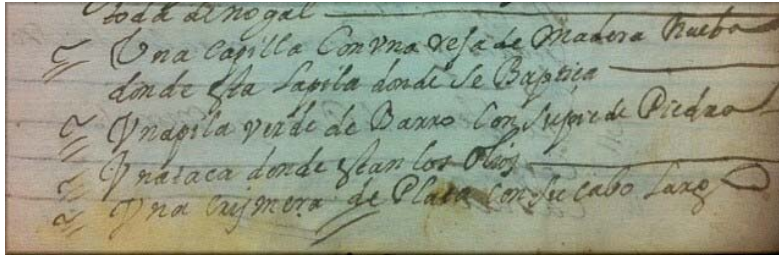 toda de nogal
Una Capilla Con Vna reja de Madera Nueba
donde esta la pila donde se Baptiça
Vna pila verde de Barro Con su pie de Piedra
Vna taca donde estan los olios
Vna Crismera de Plata Con su cabo Largo